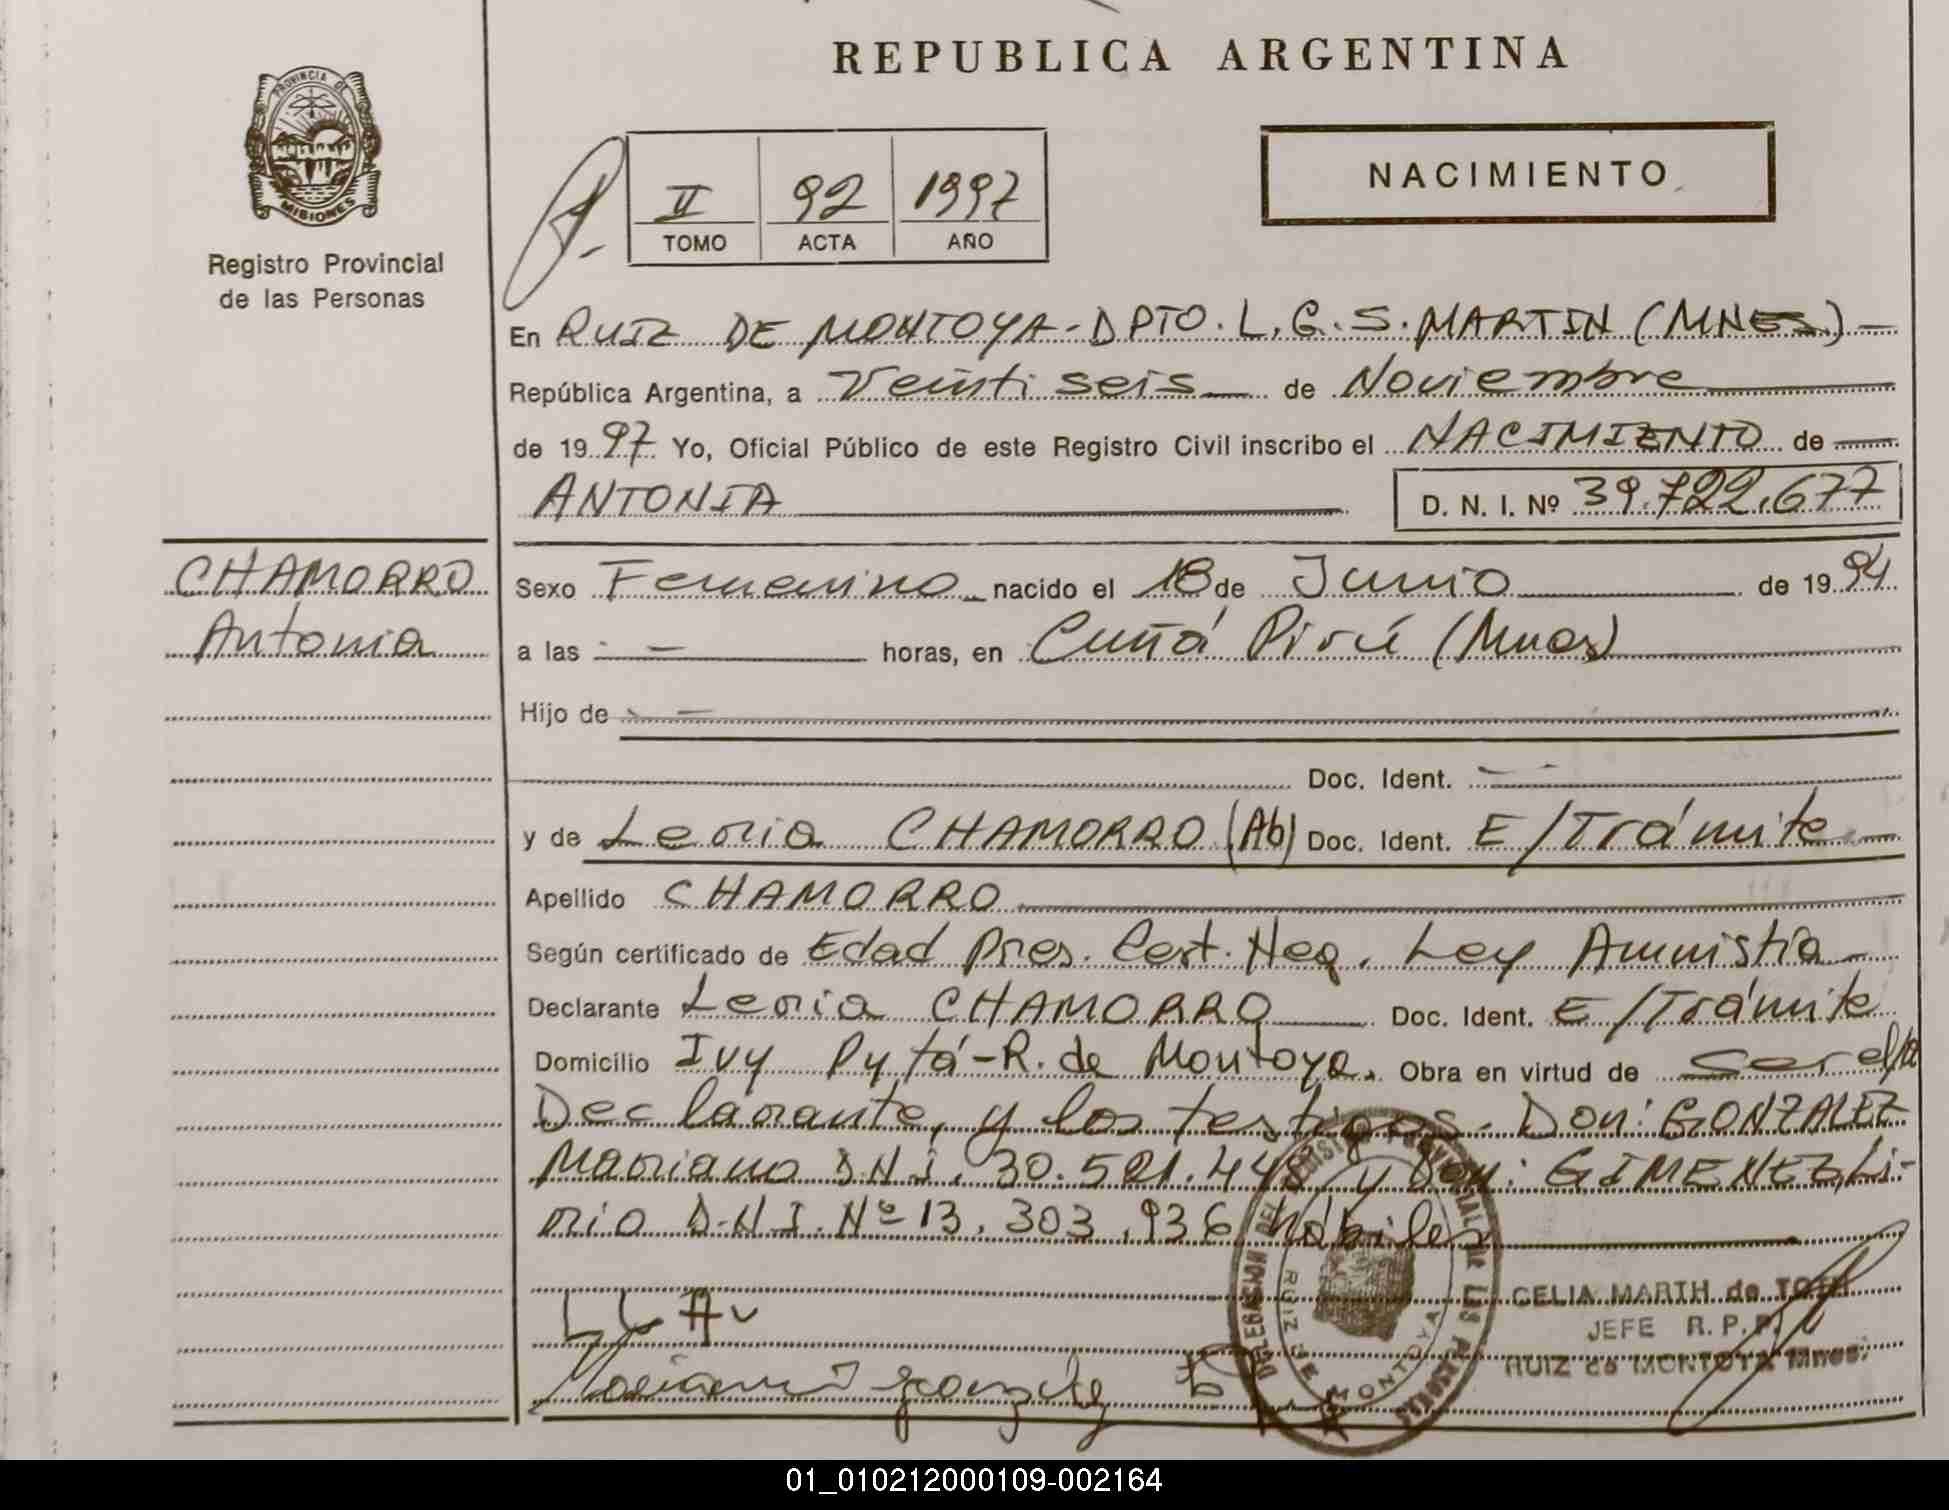 REPUBLICA ARGENTINA
PROVINCIA DE
MISIONES
Registro Provincial
de las Personas
II 92 1997
TOMO ACTA AÑO
NACIMIENTO
En RUIZ DE MONTOYA - DPTO. L. G. S. MARTIN (MNES) -
República Argentina, a Veinti seis de Noviembre
de 1997 Yo, Oficial Público de este Registro Civil inscribo el NACIMIENTO de
ANTONIA D. N. I. Nº 39.722.677
CHAMORRO
Antonia
Sexo Femenino nacido el 18 de Junio de 1994
a las - horas, en Cuñá Pirú (Mnes)
Hijo de -
Doc. Ident. -
y de Leoria CHAMORRO (Ab) Doc. Ident. E/Trámite
Apellido CHAMORRO
Según certificado de Edad Pres. Cert. Neg. Ley Amnistía
Declarante Leoria CHAMORRO Doc. Ident. E/Trámite
Domicilio Ivy Pytá - R. de Montoya. Obra en virtud de ser el/la
Declarante, y los testigos - Don: GONZALEZ
Mariano D.N.I. 30.521.44 y Don: GIMENEZ, Li-
rio D.N.I. Nº 13.303.936 hábiles
DELEGACION DEL REGISTRO PROVINCIAL DE LAS PERSONAS
RUIZ DE MONTOYA
CELIA MARTH de TOTH
JEFE R. P. P.
RUIZ de MONTOYA Mnes.
01_010212000109-002164